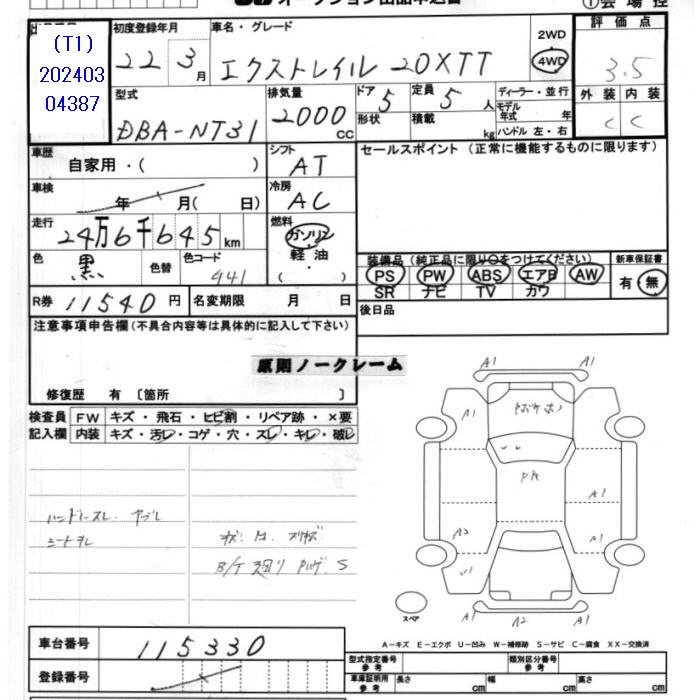 (T1)
202403
04387
初度登録年月
22年3月
車名・グレード
エクストレイル 20XTT
2WD
4WD
評価点
3.5
外装 内装
C C
型式
DBA-NT31
排気量
2000 CC
ドア 5
形状
定員 5 人
積載 kg
ディーラー・並行
モデル年式 年
ハンドル 左・右
車歴
自家用・( )
シフト
AT
セールスポイント (正常に機能するものに限ります)
車検
年 月( 日)
冷房
AC
走行
24万6千645km
燃料
ガソリン
軽油
・
( )
色
黒
色替
色コード
441
装備品 (純正品に限り○をつけてください)
PS PW ABS エアB AW
SR ナビ TV カワ
新車保証書
有・無
R券 11540 円
名変期限 月 日
後日品
注意事項申告欄 (不具合内容等は具体的に記入して下さい)
原則ノークレーム
修復歴 有 〔箇所 〕
検査員 FW キズ・飛石・ヒビ割・リペア跡・×要
記入欄 内装 キズ・汚レ・コゲ・穴・スレ・キレ・破レ
A1 A1
A1
A1
A2 A1
A1 A2 A1
スペア
A-キズ E-エクボ U-凹み W-補修跡 S-サビ C-腐食 XX-交換済
車台番号 115330
登録番号
型式指定番号 参考
類別区分番号 参考
車庫証明用 参考 長さ cm 幅 cm 高さ cm